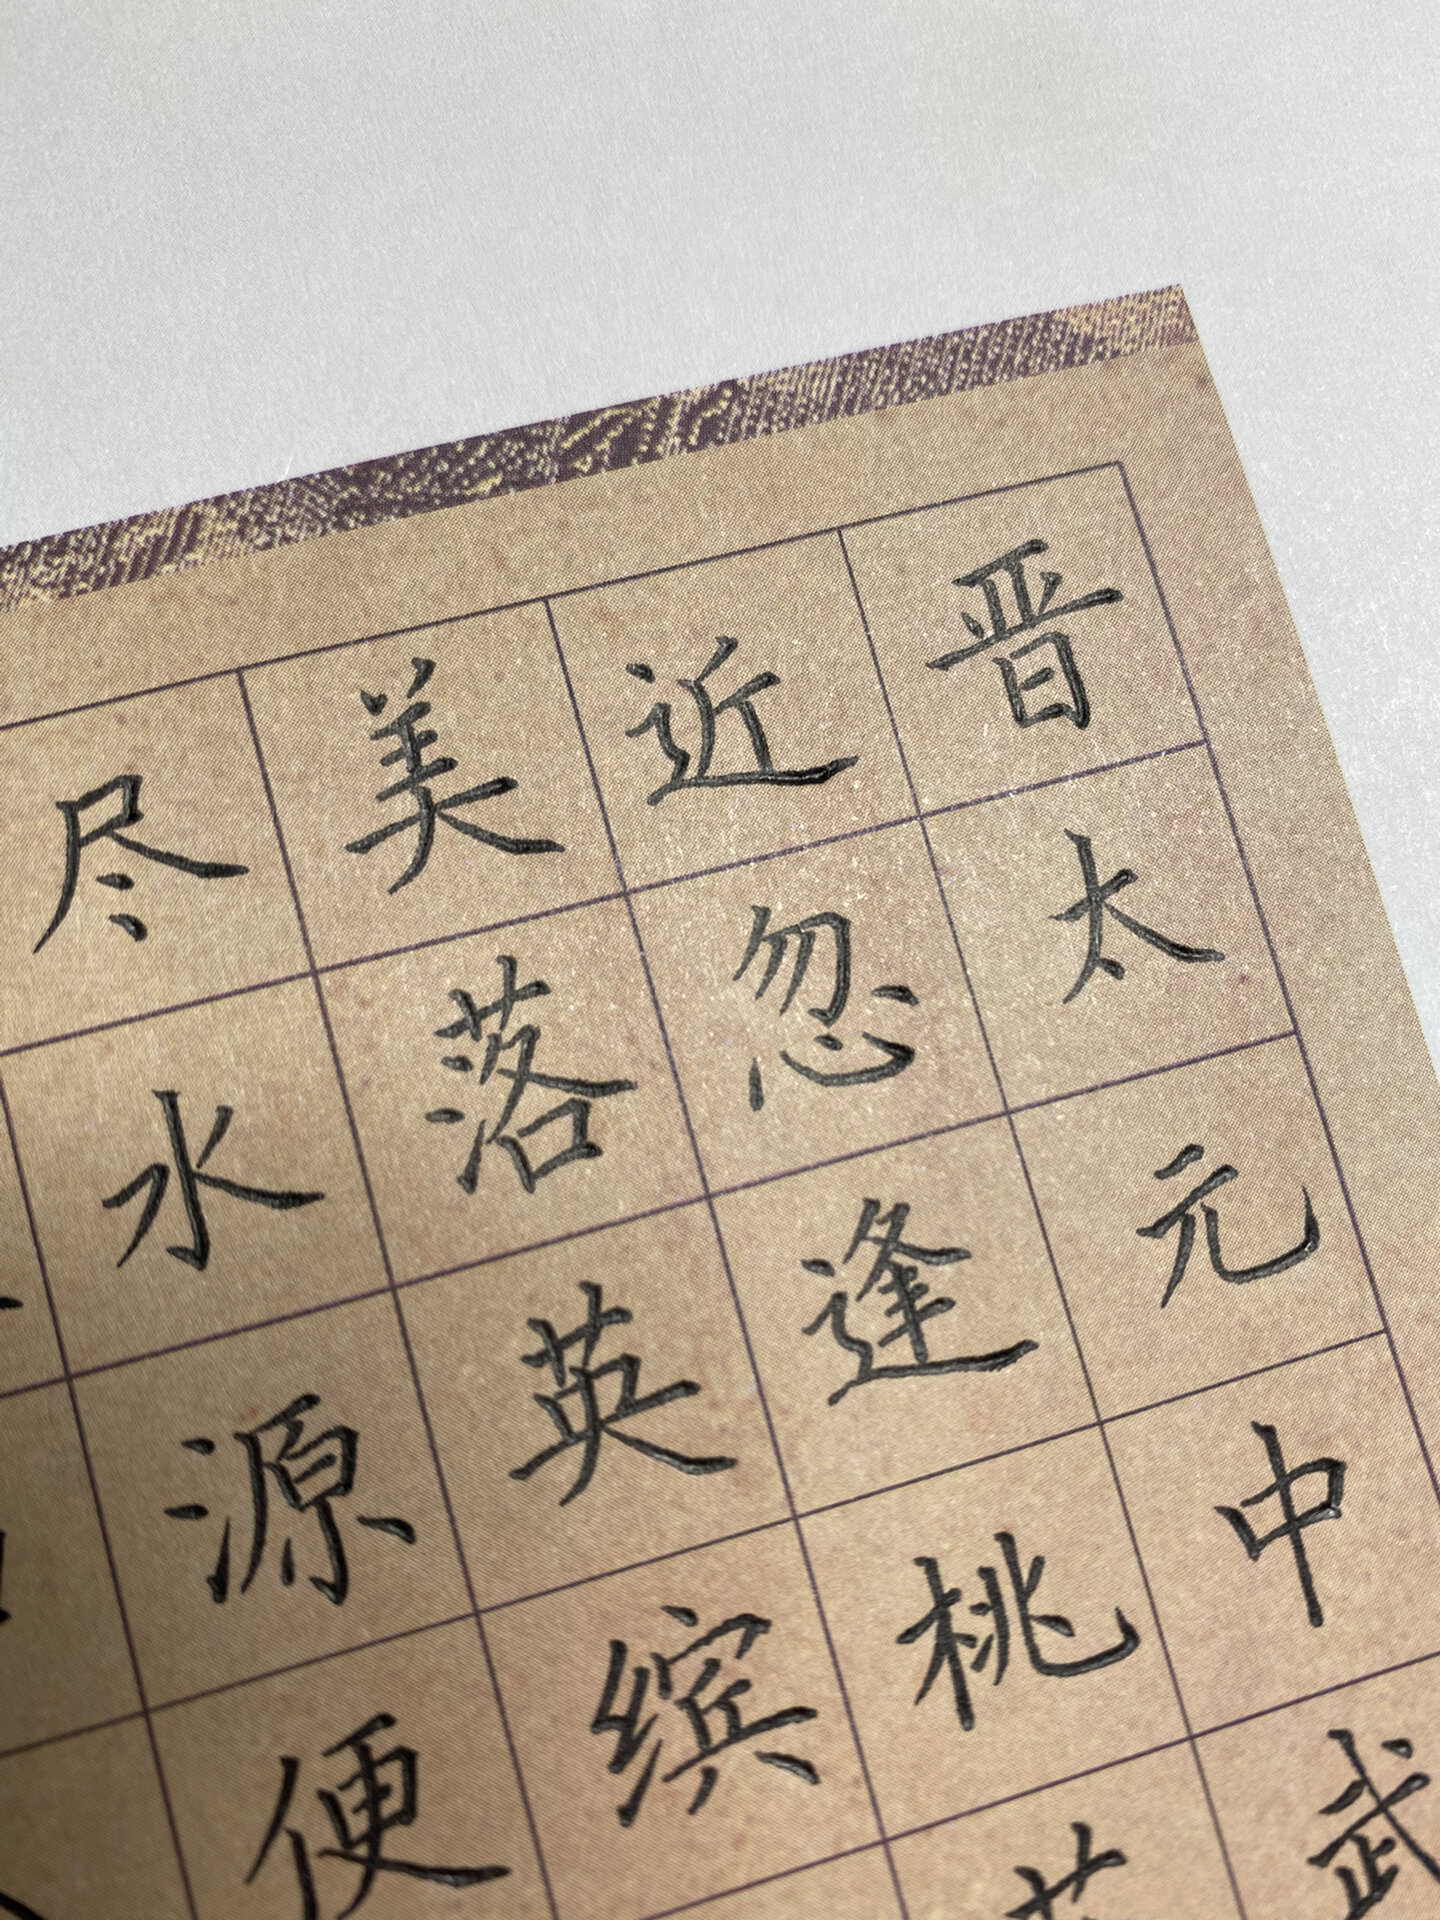 晋太元中武
近忽逢桃
美落英缤
尽水源便